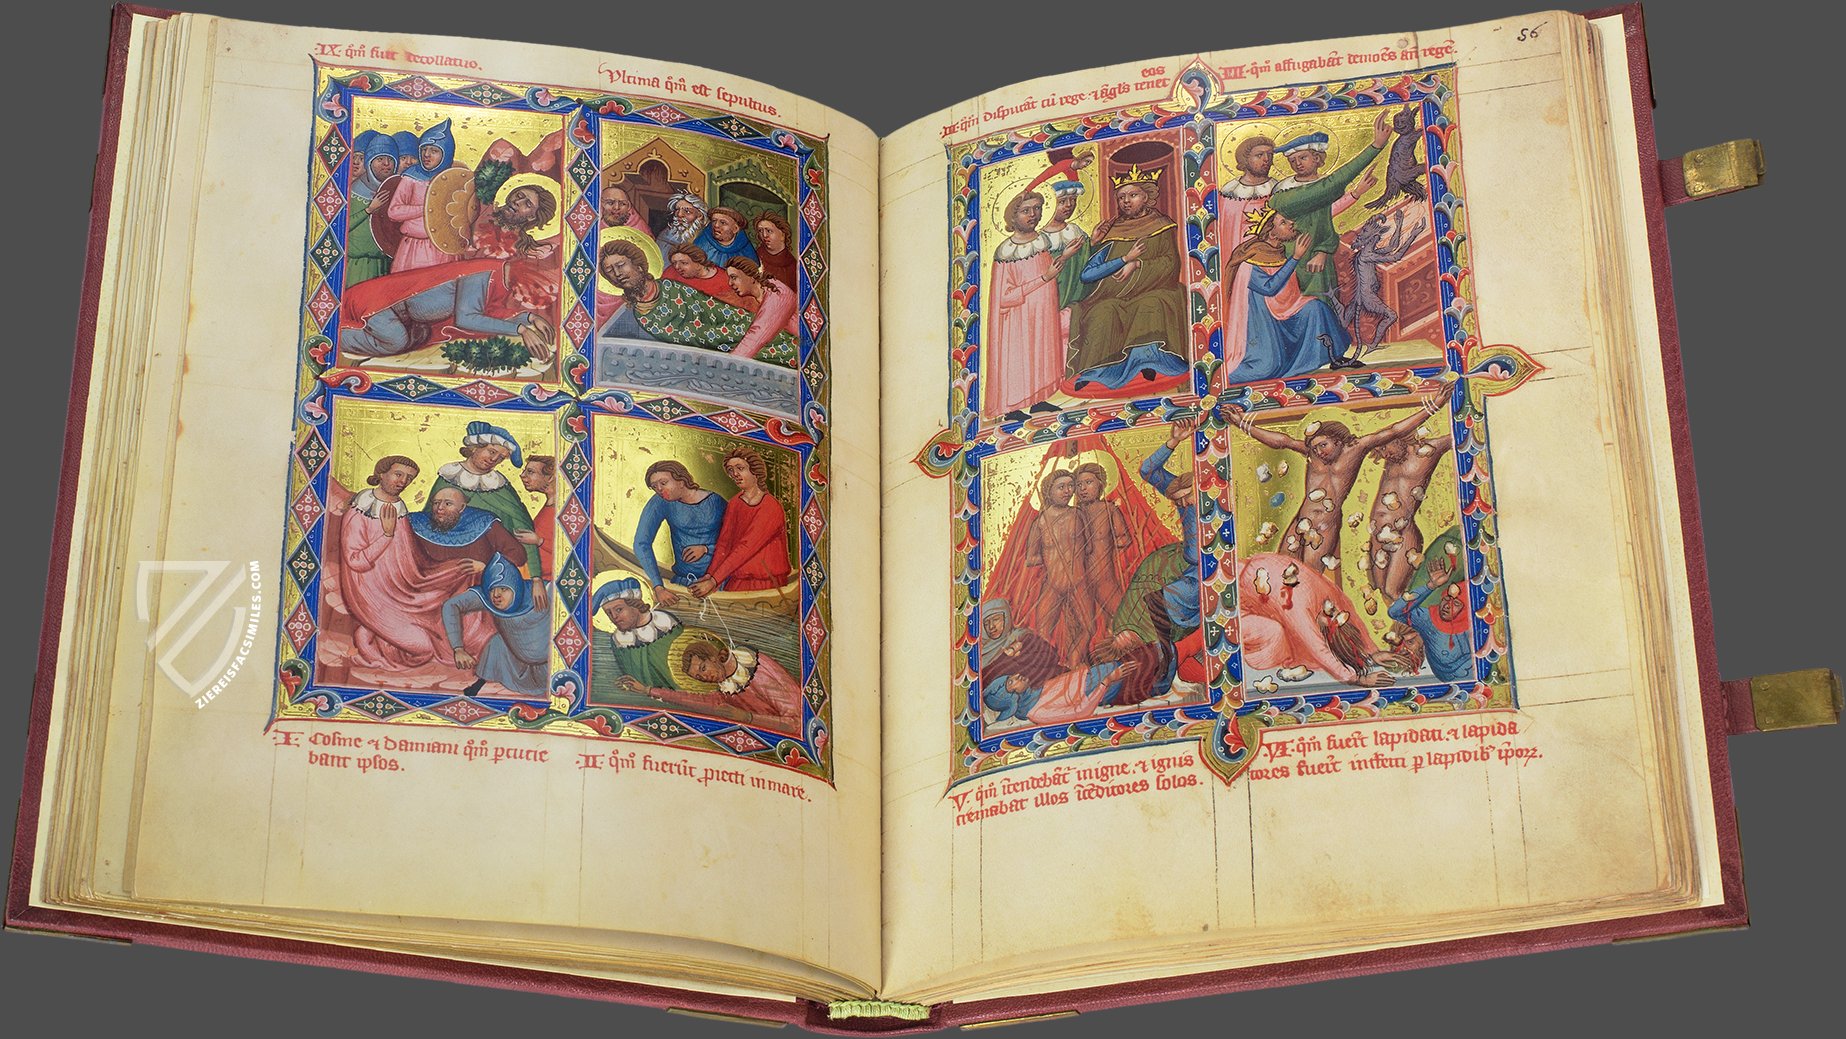 IX. qm fuit decollatio.
Ultima qm est sepultus.
I. Cosme & damiani qm pcutie
bant ipsos.
II. qm fuerut piecti in mare.
eos
III. qm disputat cu rege & agls tenet
IIII. qm affugabat demoes an rege.
56
V. qm icendebat in igne. & ignis
cremabat illos iceditores solos.
VI. qm fuert lapidati. & lapida
tores fuert infecti p lapidib ipoz.
ZIEREISFACSIMILES.COM